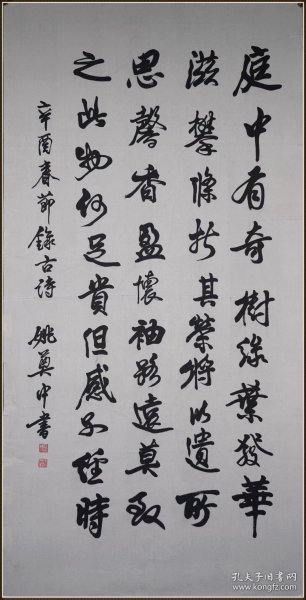 庭中有奇樹綠葉發華
滋攀條折其榮將以遺所
思馨香盈懷袖路遠莫致
之此物何足貴但感別經時
辛酉春節錄古詩 姚奠中書
孔夫子旧书网
www.kongfz.com